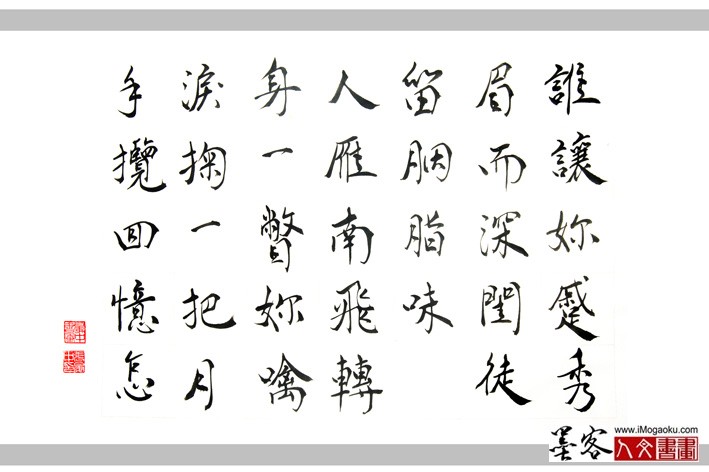 誰讓妳蹙秀
眉而深閨徒
留胭脂味
人雁南飛轉
身一瞥妳噙
淚掬一把月
手攬回憶怎
www.iMogaoku.com
墨客人文書畫